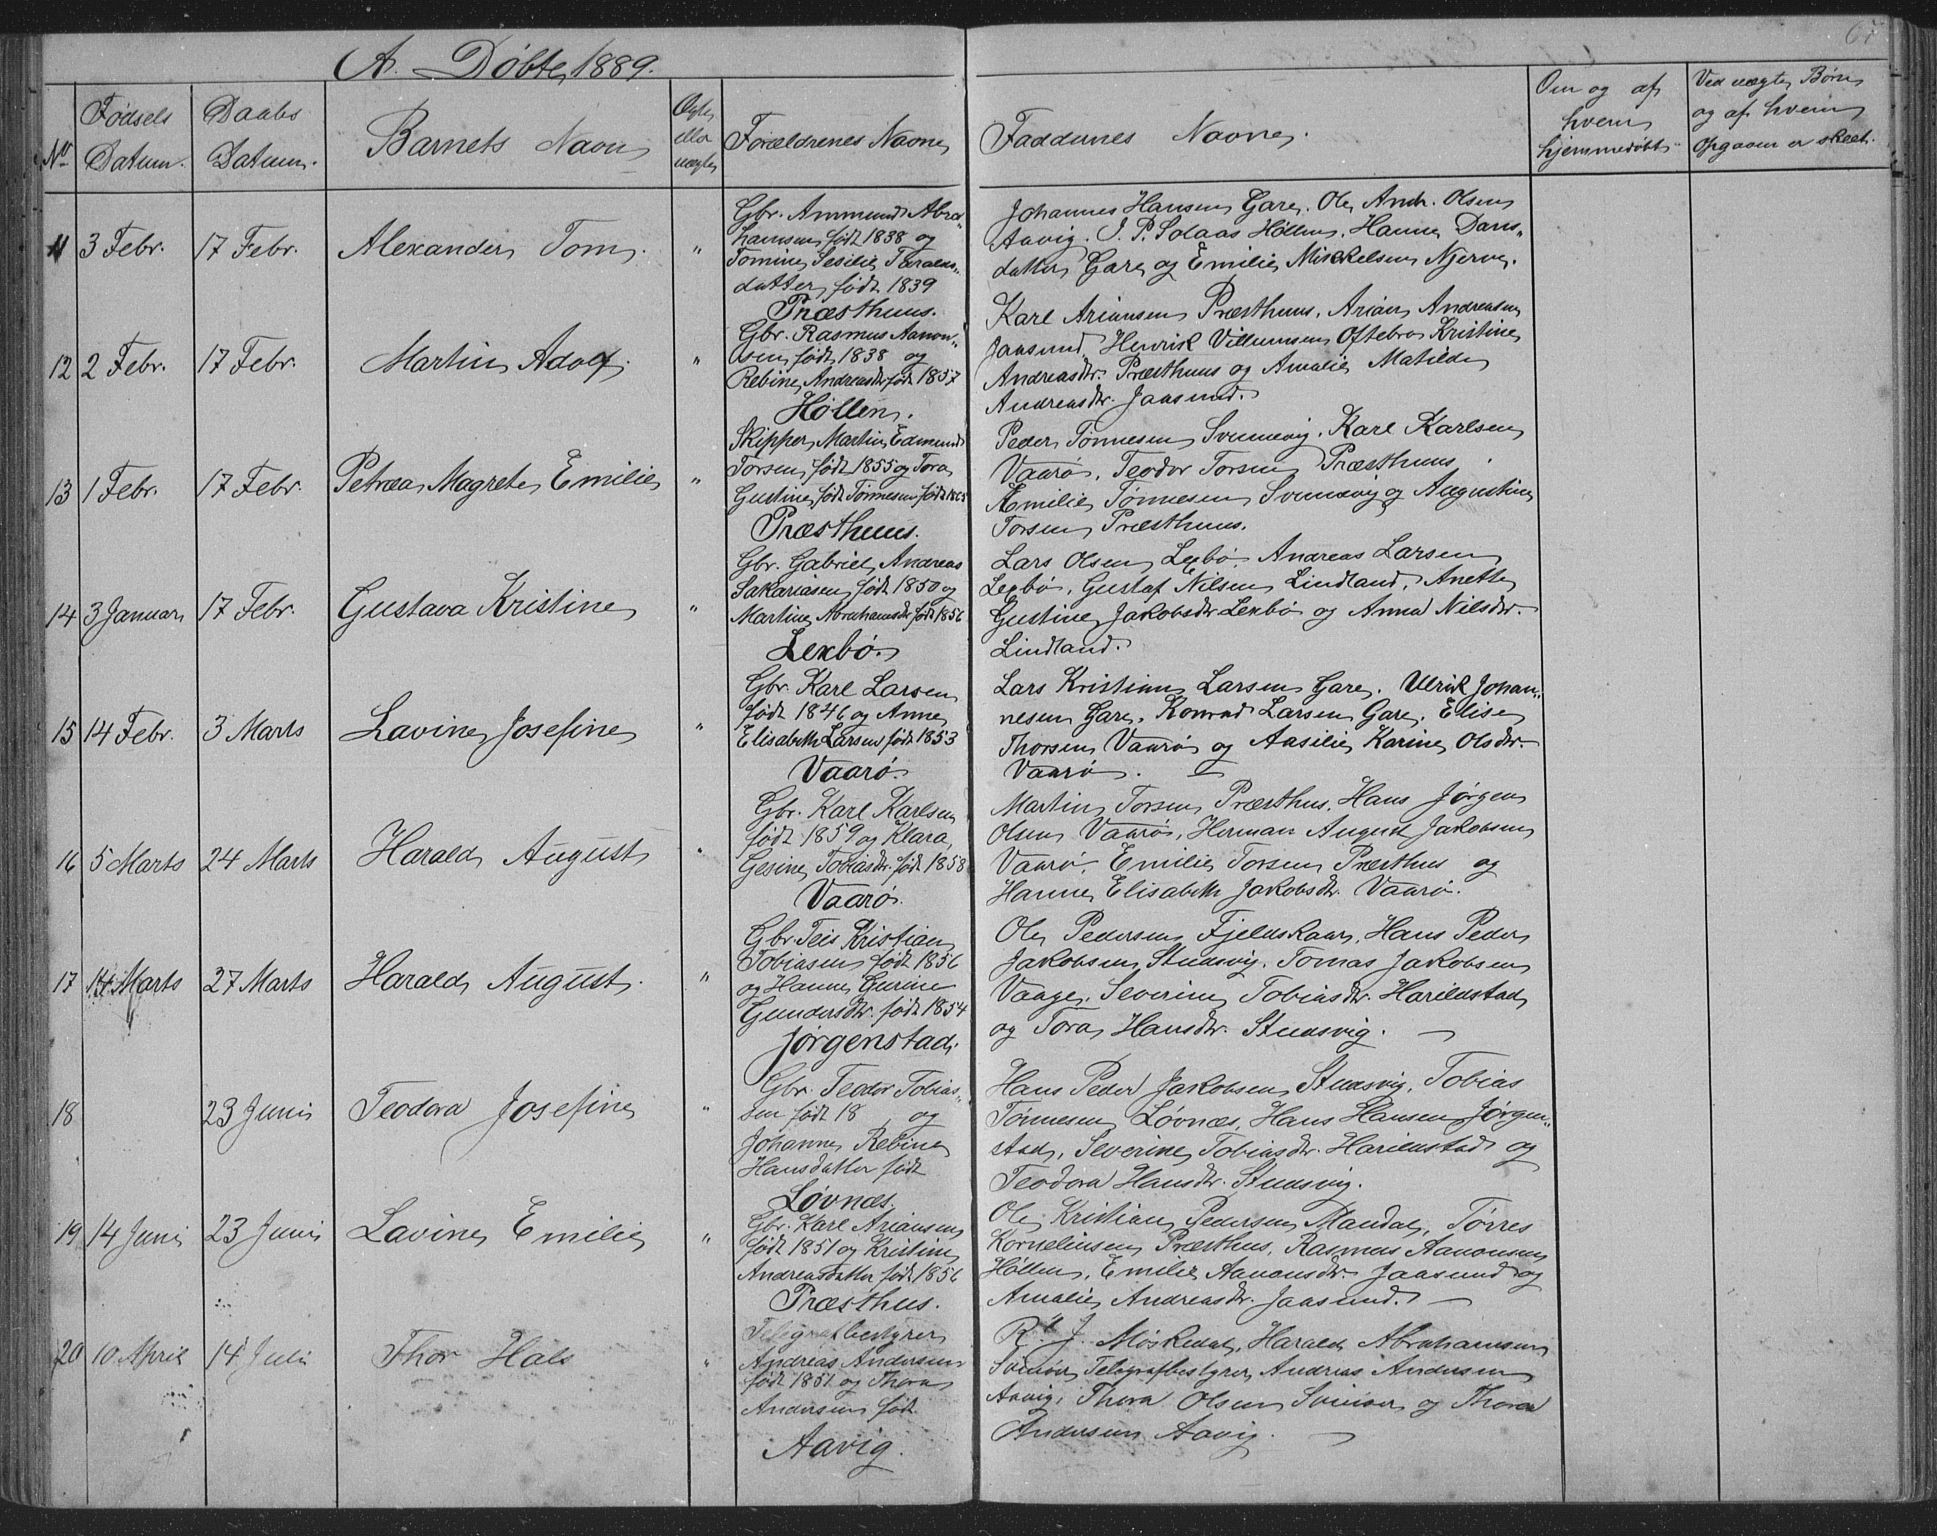 A. Døbte, 1889.
No Fødsels Datum. Daabs Datum. Barnets Navn Ægte eller uægte Forældrenes Navne Faddernes Navne. Om og af hvem hjemmedøbt Ved uægte Børn og af hvem Opgaven er skeet.
11 3 Febr. 17 Febr. Alexander Tom. "
Gbr. Ammund Abra-
hamsen født 1838 og
Tomine Sesilie Taralds-
datter født 1839
Præsthuus.
Johannes Hansen Gare. Ole Andr. Olsen
Aavig. J. P. Solaas Høllen. Hanne Dans-
datter Gare og Emilie Mikkelsen Njerve.
12 2 Febr. 17 Febr. Martin Adolf. "
Gbr. Rasmus Aanon-
sen født 1838 og
Rebine Andreasdtr født 1857
Høllen.
Karl Ariansen Præsthuus. Arian Andreasen
Jaasund Henrik Villumsen Oftebro Kristine
Andreasdtr. Præsthuus og Amalie Matilde
Andreasdtr. Jaasund.
13 1 Febr. 17 Febr. Petrea Magrete Emilie "
Skipper Martin Edmund
Torsen født 1855 og Tora
Gustine født Tønnesen født
Præsthuus.
Peder Tønnesen Svennevig. Karl Karlsen
Vaarø. Teodor Torsen Præsthuus.
Emilie Tønnesen Svennevig og Augustine
Torsen Præsthuus.
14 3 Januar 17 Febr. Gustava Kristine "
Gbr. Gabriel Andreas
Sakariasen født 1850 og
Martine Abrahamsdtr født 1856
Lexbø.
Lars Olsen Lexbø. Andreas Larsen
Lexbø. Gustaf Nilsen Lindland. Anette
Gustine Jakobsdtr Lexbø og Anna Nilsdtr.
Lindland.
15 14 Febr. 3 Marts Lavine Josefine "
Gbr. Karl Larsen
født 1846 og Anne
Elisabeth Larsen født 1853
Vaarø.
Lars Kristian Larsen Gare. Ulrik Johan-
nesen Gare. Konrad Larsen Gare. Elise
Thorsen Vaarø og Aasilie Karine Olsdtr.
Vaarø.
16 5 Marts 24 Marts Harald August "
Gbr. Karl Karlsen
født 1859 og Klara
Gesine Tobiasdtr. født 1858
Vaarø.
Martin Torsen Præsthus. Hans Jørgen
Olsen Vaarø. Herman August Jakobsen
Vaarø. Emilie Torsen Præsthus og
Hanne Elisabeth Jakobsdtr. Vaarø.
17 14 Marts 27 Marts Harald August. "
Gbr. Teis Kristian
Tobiasen født 1856
og Hanne Gurine
Gundersdtr. født 1854
Jørgenstad.
Ole Pedersen Fjeldskaar. Hans Peder
Jakobsen Studsvig. Tomas Jakobsen
Vaage. Severine Tobiasdtr. Harildstad
og Tora Hansdtr. Studsvig.
18 23 Juni Teodora Josefine "
Gbr. Teodor Tobias-
sen født 18 og
Johanne Rebine
Hansdatter født
Løvnæs.
Hans Peder Jakobsen Studsvig. Tobias
Tønnesen Løvnæs. Hans Hansen Jørgen-
stad. Severine Tobiasdtr. Harildstad og
Teodora Hansdtr. Studsvig.
19 14 Juni 23 Juni Lavine Emilie "
Gbr. Karl Ariansen
født 1851 og Kristine
Andreasdatter født 1856
Præsthus.
Ole Kristian Pedersen Mandal. Tørres
Korneliusen Præsthus. Rasmus Aanonsen
Høllen. Emilie Aanonsdtr. Jaasund og
Amalie Andreasdtr. Jaasund.
20 10 April 14 Juli Thor Hals "
Telegrafbestyrer
Andreas Andersen
født 1851 og Thora
Andersen født
Aavig.
R. J. Møskedal. Harald Abrahamsen
Svinør Telegrafbestyrer Andreas Andersen
Aavig. Thora Olsen Svinør og Thora
Andersen Aavig.